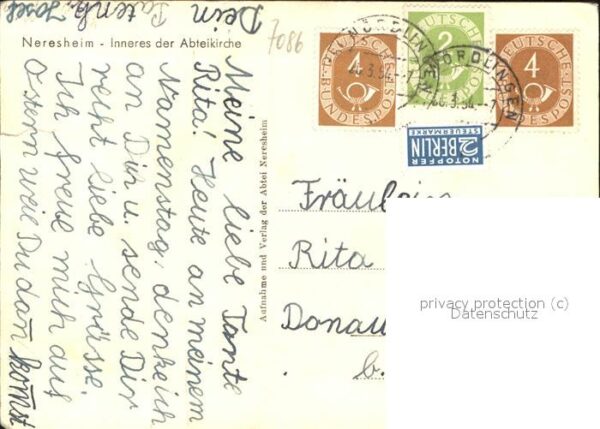 Neresheim - Inneres der Abteikirche
7086
Meine liebe Tante
Rita! Heute an meinem
Namenstag, denke ich
an Dir u. sende Dir
recht liebe Grüsse.
Ich freue mich auf
Ostern weil Du dan komst
Dein
Patenk. Josef
Aufnahme und Verlag der Abtei Neresheim
4
DEUTSCHE
BUNDESPOST
2
DEUTSCHE
4
DEUTSCHE
BUNDESPOST
NÖRDLINGEN
26.3.54.-7
NÖRDLINGEN
26.3.54.-7
NOTOPFER
2 BERLIN
STEUERMARKE
Fräulein
Rita
Donau
b.
privacy protection (c)
Datenschutz